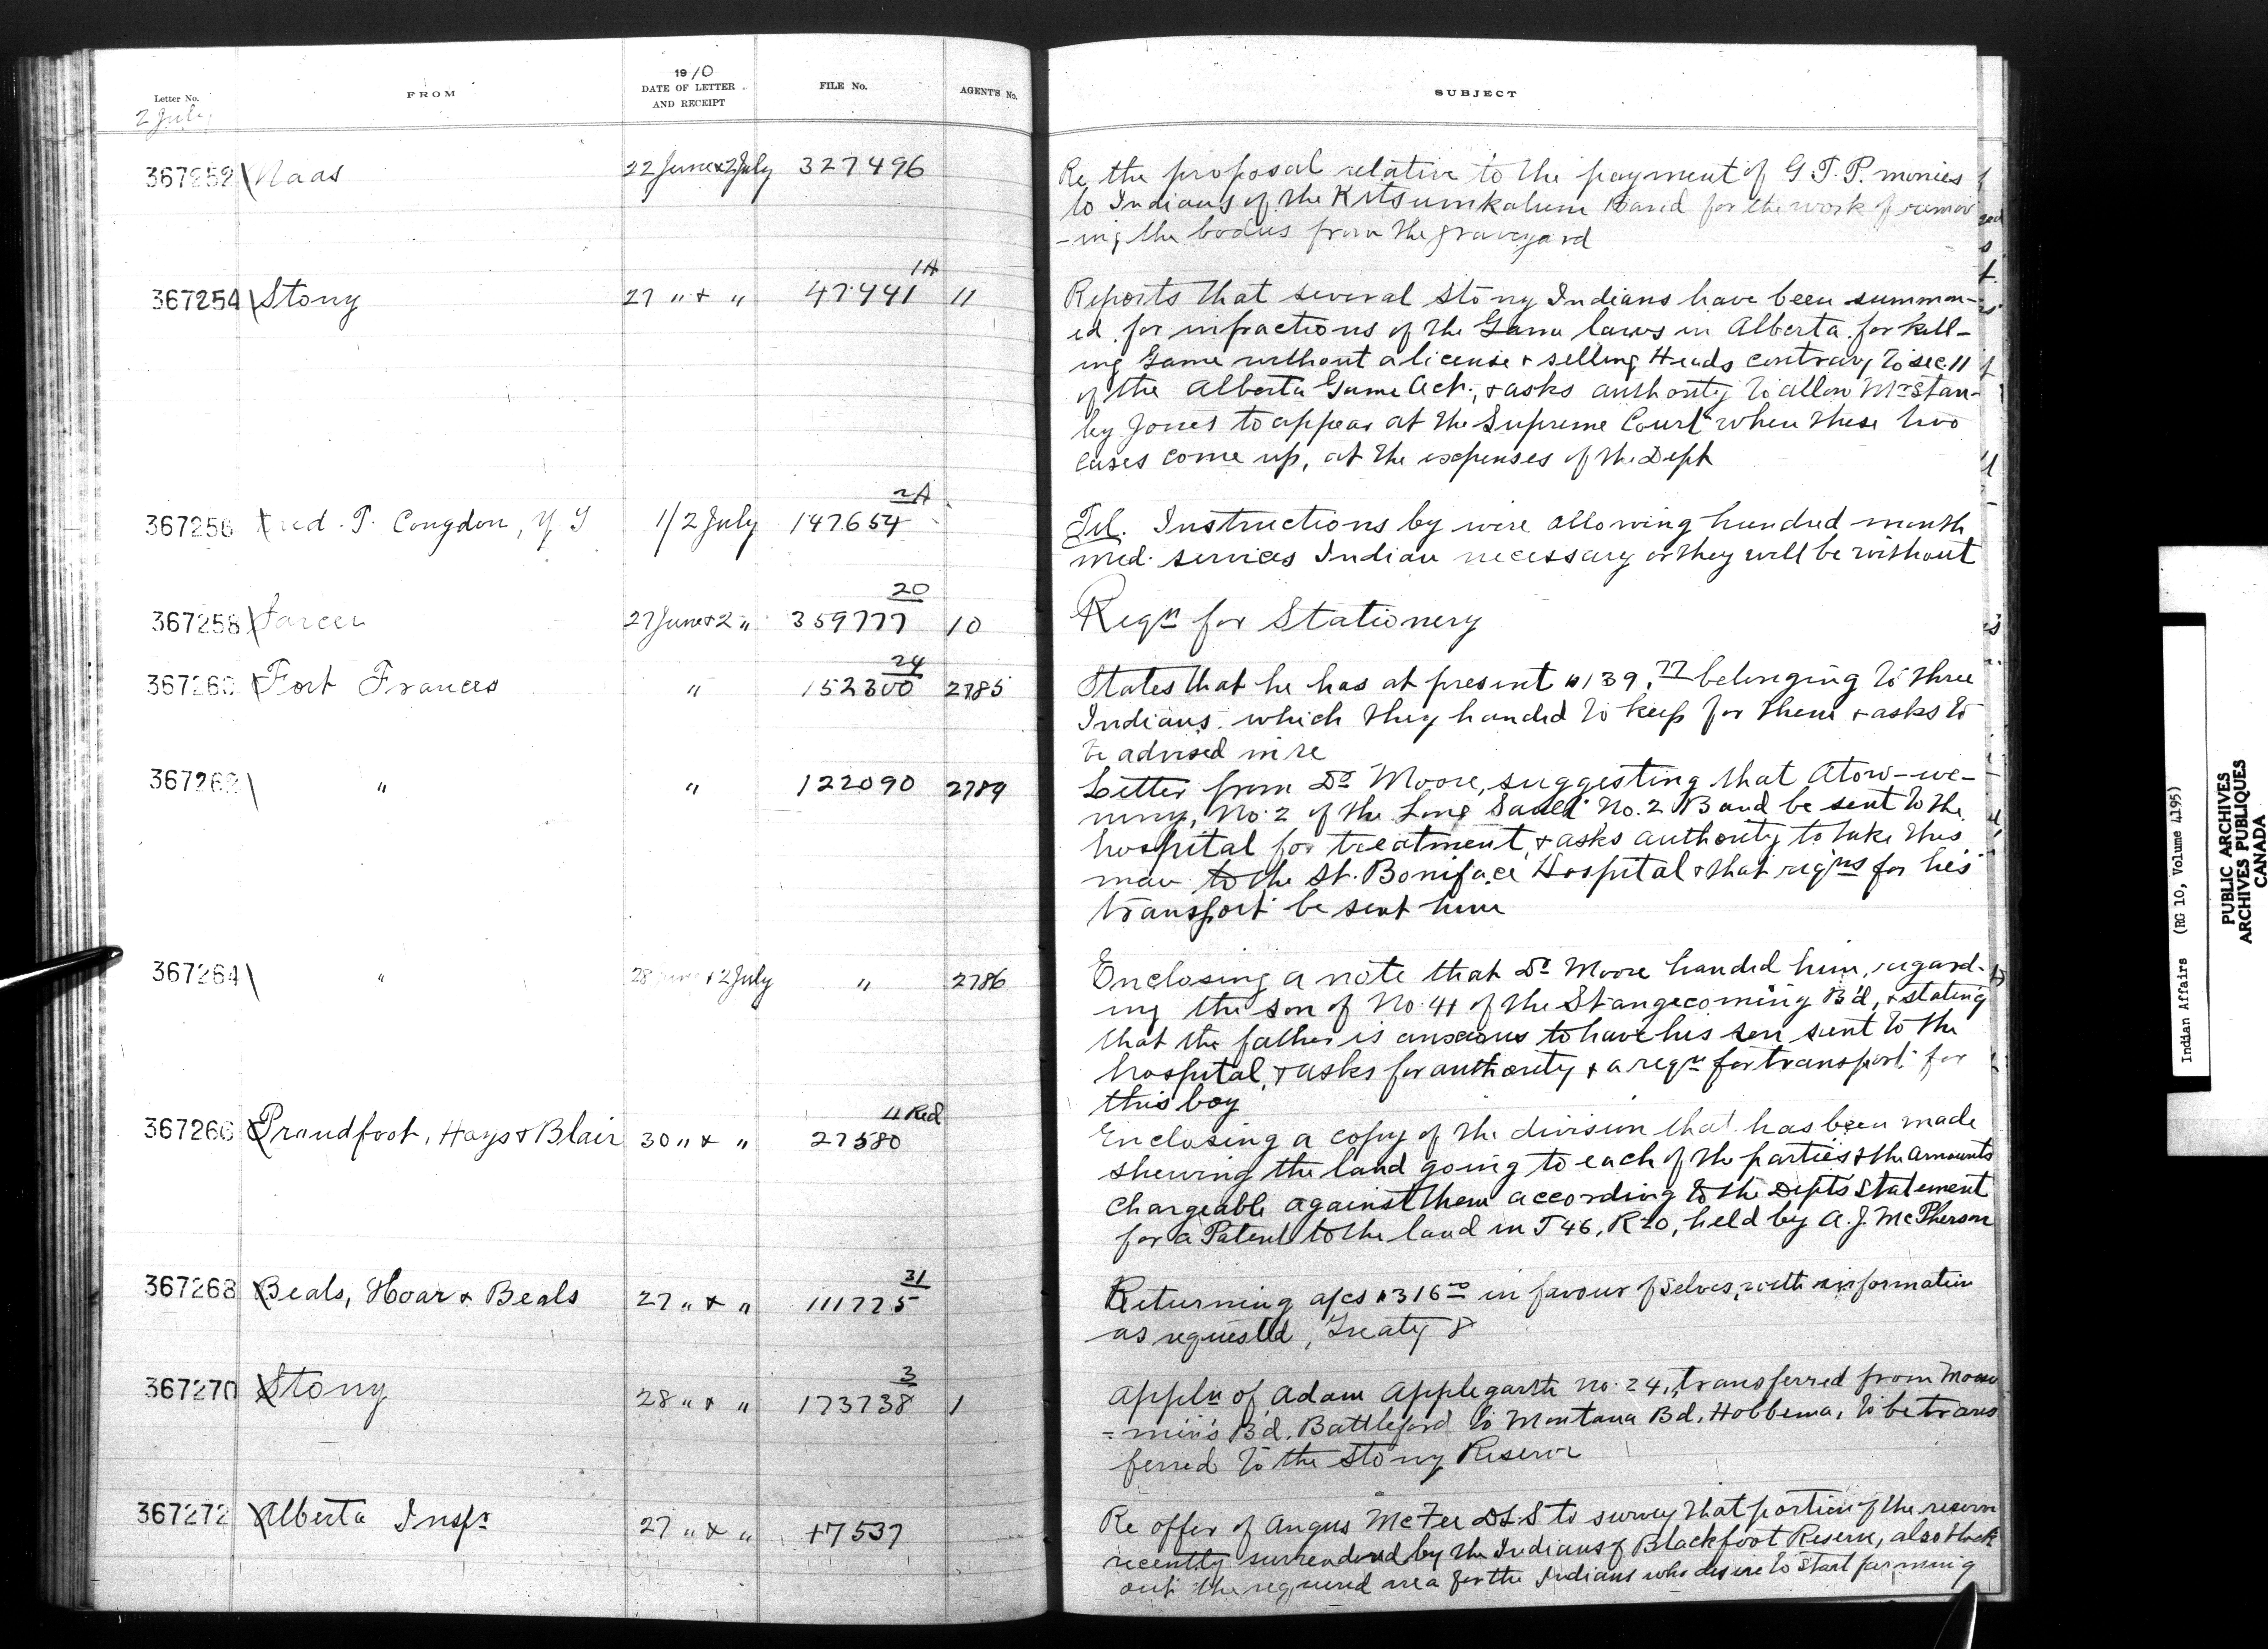 1910
Letter No.
FROM
DATE OF LETTER
AND RECEIPT
FILE No.
AGENT'S No.
SUBJECT
2 July
367252 Naas 22 June & 2 July 327496
Re the proposal relative to the payment of G.T.P. monies
to Indians of the Kitsumkalum Band for the work of remov
-ing the bodies from the graveyard
367254 Stony 27 " & " 47441 1A 11
Reports that several Stony Indians have been summon-
ed for infractions of the Game laws in Alberta for kill-
ing Game without a license & selling Heads contrary to sec. 11
of the Alberta Game Act, & asks authority to allow Mr Stan-
ley Jones to appear at the Supreme Court when these two
cases come up, at the expenses of the Dept
367256 Fred. T. Congdon, Y T 1/2 July 147654 2A
Tel. Instructions by wire allowing hundred month
med. services Indian necessary or they will be without
367258 Sarcee 27 June & 2 " 359777 20 10
Reqn for Stationery
367260 Fort Frances " 152300 24 2785
States that he has at present $139.77 belonging to three
Indians which they handed to keep for them & asks to
be advised in re
367262 " " 122090 2789
Letter from Dr Moore, suggesting that Atow-we-
No. 2 of the Long Sault No. 2 Band be sent to the
hospital for treatment, & asks authority to take this
man to the St. Boniface Hospital & that reqns for his
transport be sent him
367264 " 28 June & 2 July " 2786
Enclosing a note that Dr Moore handed him, regard-
ing the son of No. 41 of the Stangecoming Bd, & stating
that the father is anxious to have his son sent to the
hospital, & asks for authority & a reqn for transport for
this boy
367266 Proudfoot, Hays & Blair 30 " & " 27580 11 Red
Enclosing a copy of the division that has been made
shewing the land going to each of the parties & the amounts
chargeable against them according to the Depts Statement
for a Patent to the land in T 46, R 20, held by A. J. McPherson
367268 Beals, Hoar & Beals 27 " & " 111775 31
Returning a/cs $316.00 in favour of selves, with information
as requested, Treaty 8
367270 Stony 28 " & " 173738 3 1
Appln of Adam Applegarth No. 24, transferred from Moose
=min's Bd. Battleford to Montana Bd. Hobbema, to be trans
ferred to the Stony Reserve
367272 Alberta Inspr 27 " & " 47537
Re offer of Angus McFee DLS to survey that portion of the reserve
recently surrendered by the Indians of Blackfoot Reserve, also
out the required area for the Indians who desire to start farming
Indian Affairs (RG 10, Volume 4195)
PUBLIC ARCHIVES
ARCHIVES PUBLIQUES
CANADA